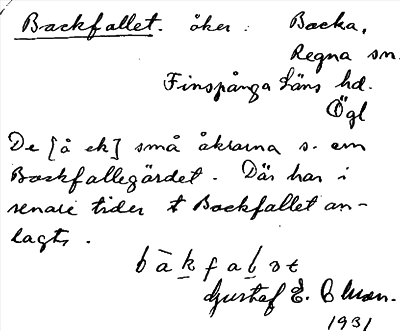 Backfallet. åker : Backa,
Regna sn.
Finspånga Läns hd.
Ögl
De [å ek] små åkrarna s. om
Backfallegärdet. Där har i
senare tider t Backfallet an-
lagts.
bàkfalət
Gustaf E. Olsson.
1931